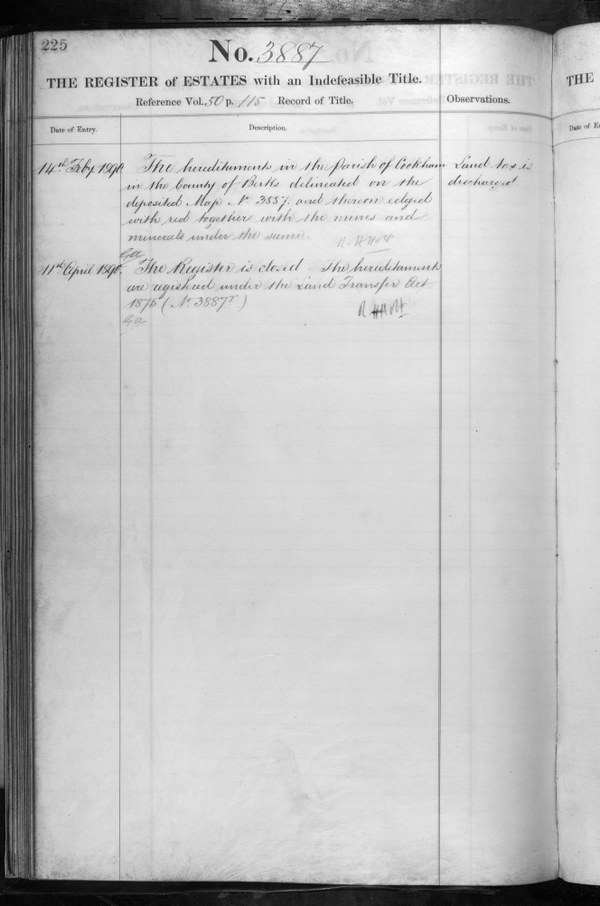 225
No. 3887
THE REGISTER of ESTATES with an Indefeasible Title.
Reference Vol. 50 p. 115 Record of Title.
Observations.
Date of Entry.
Description.
14th Feby
The hereditaments in the Parish of Cookham
in the County of Berks delineated on the
deposited Map No. 3887 and thereon edged
with red together with the mines and
minerals under the same.
Land tax is
discharged
11th April
The Register is closed The hereditaments
are registered under the Land Transfer Act
1875 (No. 3887T)
THE
Date of E